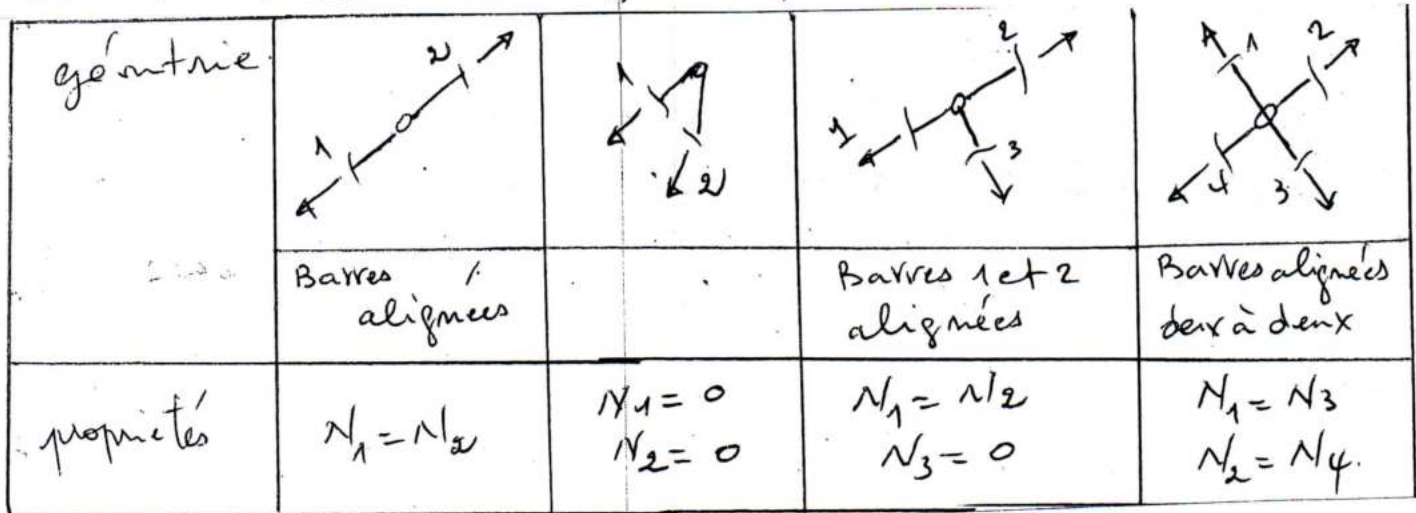 géométrie
1 2
1 2
1 2 3
1 2 3 4
Barres
alignées
Barres 1 et 2
alignées
Barres alignées
deux à deux
propriétés
N₁ = N₂
N₁ = 0
N₂ = 0
N₁ = N₂
N₃ = 0
N₁ = N₃
N₂ = N₄.